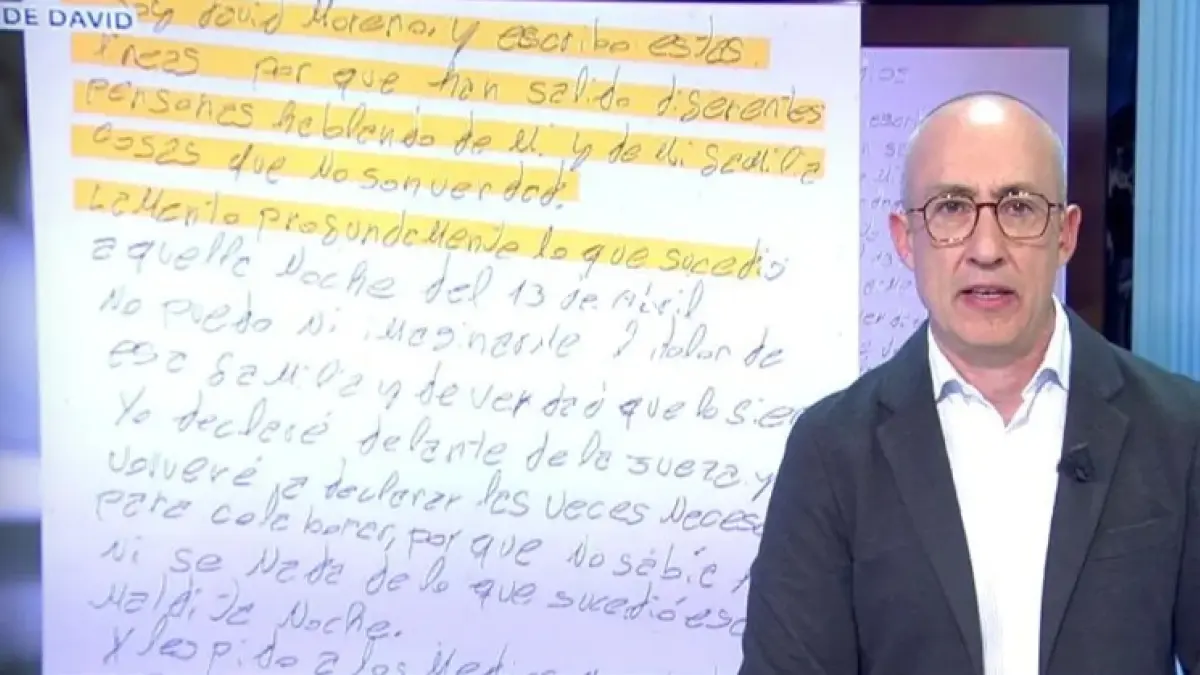 DE DAVID
soy david Moreno, y escribo estas
lineas por que han salido diserentes
personas hablando de Mi. y de Mi Samilia
cosas que No son verdad.
Lamento prosundamente lo que sucedió
aquella Noche del 13 de Abril
No puedo Ni imaginarme el dolor de
esa Samilia y de verdad que lo sien
Yo declaré delante de la sueza y
volveré a declarar las veces Neces
para colaborar, por que No sabía
Ni se Nada de lo que sucedió esa
Maldita Noche.
Y les pido a los Medi